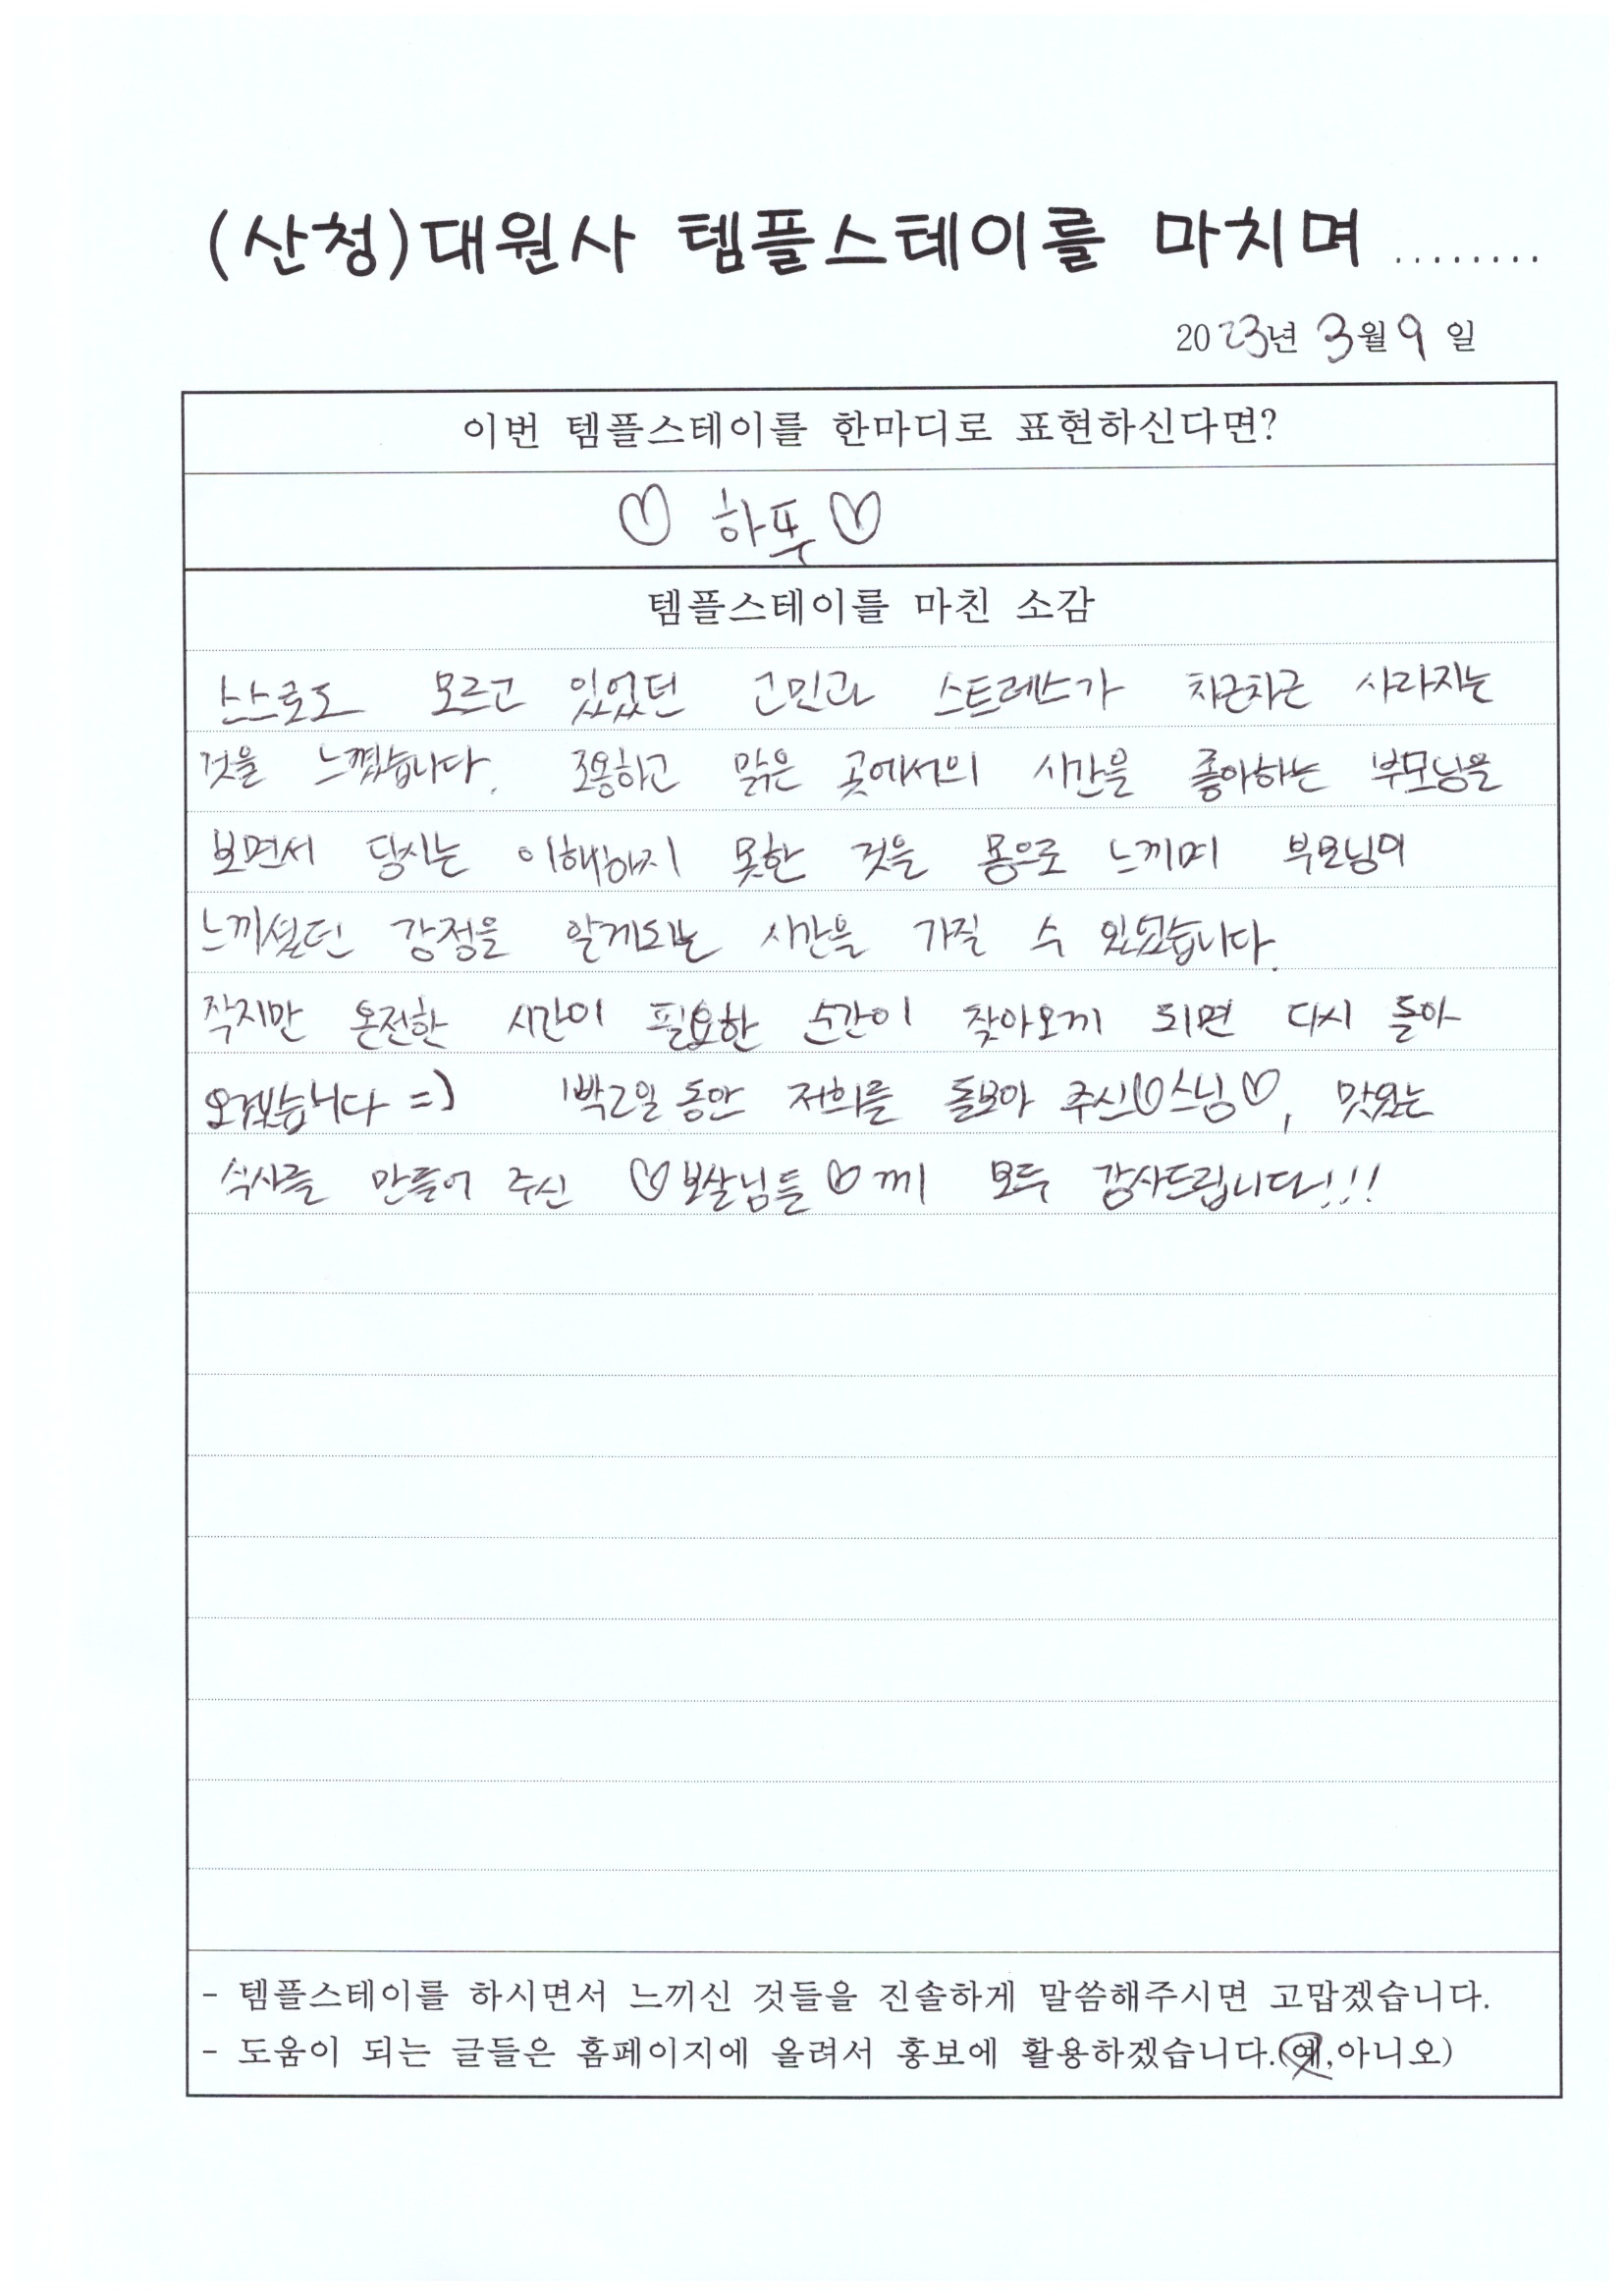 (산청)대원사 템플스테이를 마치며 ........
2023년 3월 9일
이번 템플스테이를 한마디로 표현하신다면?
♡ 하푸 ♡
템플스테이를 마친 소감
스스로도 모르고 있었던 고민과 스트레스가 차근차근 사라지는
것을 느꼈습니다. 조용하고 맑은 곳에서의 시간을 좋아하는 부모님을
보면서 당시는 이해하지 못한 것을 몸으로 느끼며 부모님의
느끼셨던 감정을 알게되는 시간을 가질 수 있었습니다.
작지만 온전한 시간이 필요한 순간이 찾아오게 되면 다시 돌아
오겠습니다 =) 1박2일 동안 저희를 돌보아 주신♡스님♡, 맛있는
식사를 만들어 주신 ♡보살님들♡께 모두 감사드립니다!!!
- 템플스테이를 하시면서 느끼신 것들을 진솔하게 말씀해주시면 고맙겠습니다.
- 도움이 되는 글들은 홈페이지에 올려서 홍보에 활용하겠습니다.(예,아니오)